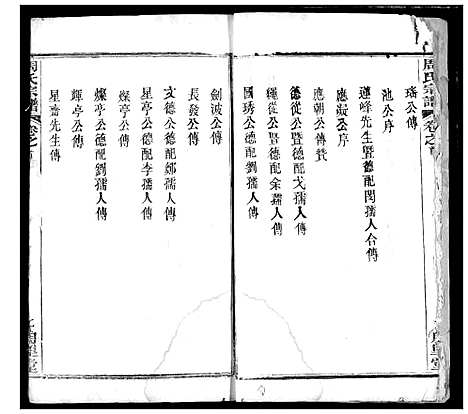 周氏宗譜
瑤公傳
池公序
蓮峰先生暨德配閔孺人合傳
應淑公序
應朝公傳贊
德從公暨德配戈孺人傳
繩從公暨德配余孺人傳
國琇公德配劉孺人傳
劍波公傳
長發公傳
文德公德配鄭孺人傳
星亭公德配李孺人傳
燦亭公傳
燦亭公德配劉孺人傳
輝亭公傳
星齋先生傳
周氏宗譜
卷之首